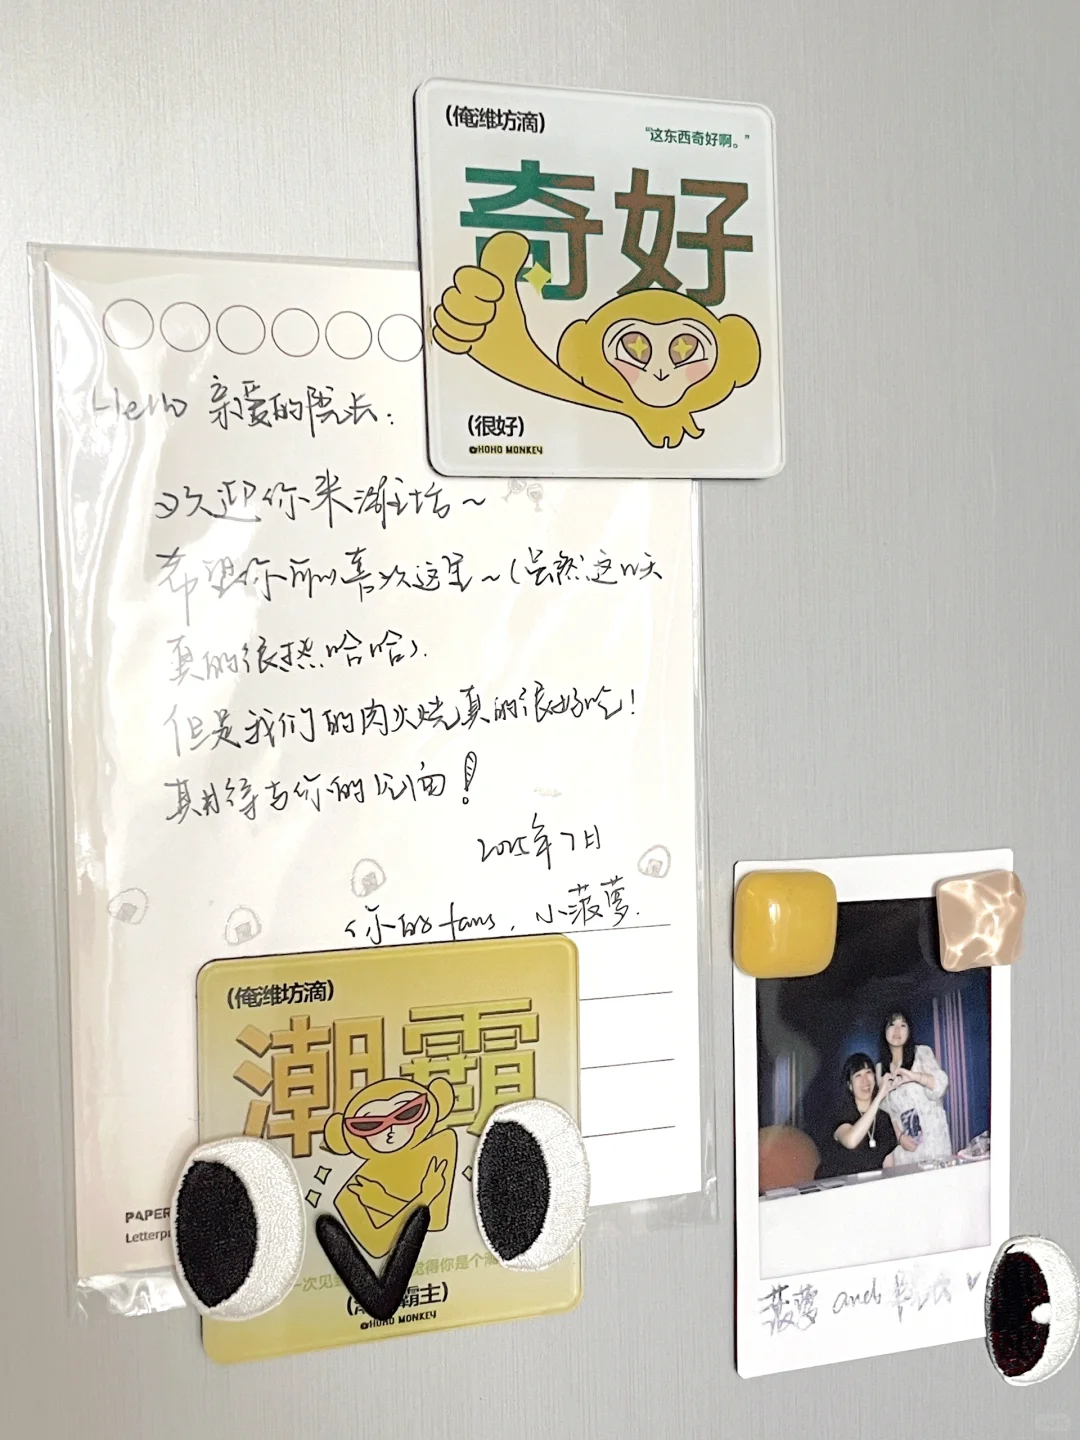 (俺潍坊滴)
“这东西奇好啊。”
奇好
(很好)
@HOHO MONKEY
Hello 亲爱的院长:
欢迎你来潍坊~
希望你可以喜欢这里~(虽然这以天
真的很热哈哈).
但是我们的肉火烧真的很好吃!
期待与你的见面!
2025年7月
你的fans, 小菠萝.
(俺潍坊滴)
潮霸
一次见
觉得你是个潮
霸主)
@HOHO MONKEY
PAPER
Letterpr
菠萝 and 院长